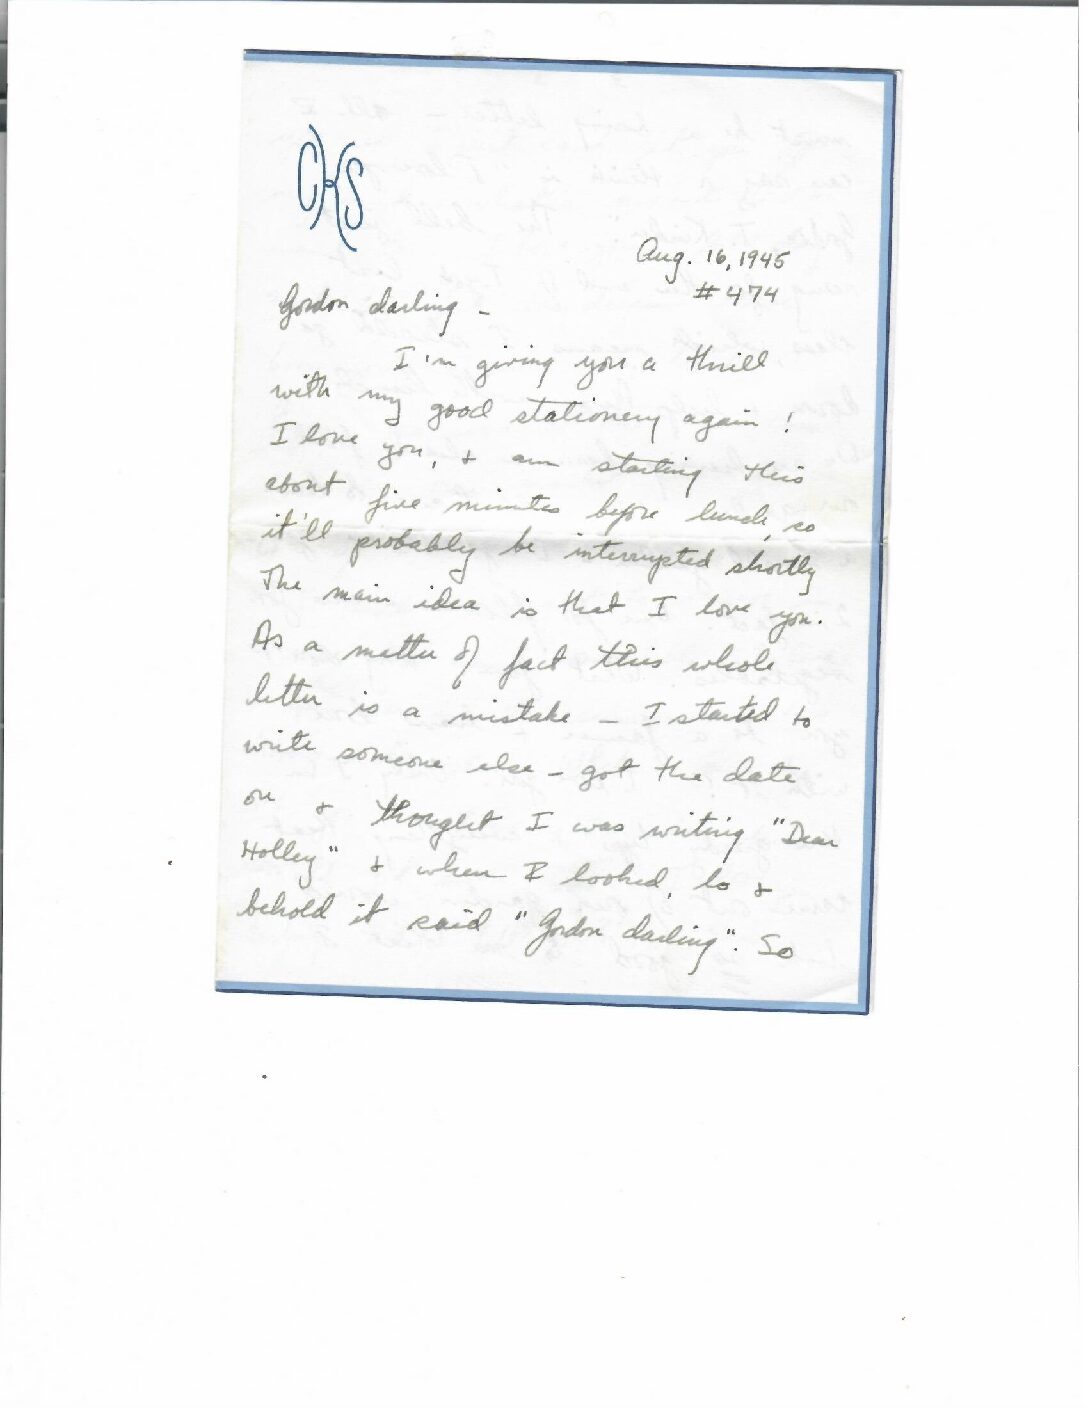 CKS
Aug. 16, 1945
#474
Gordon darling -
I'm giving you a thrill
with my good stationery again!
I love you, & am starting this
about five minutes before lunch, so
it'll probably be interrupted shortly
The main idea is that I love you.
As a matter of fact this whole
letter is a mistake - I started to
write someone else - got the date
on & thought I was writing "Dear
Holley" & when I looked, lo &
behold it said "Gordon darling". So